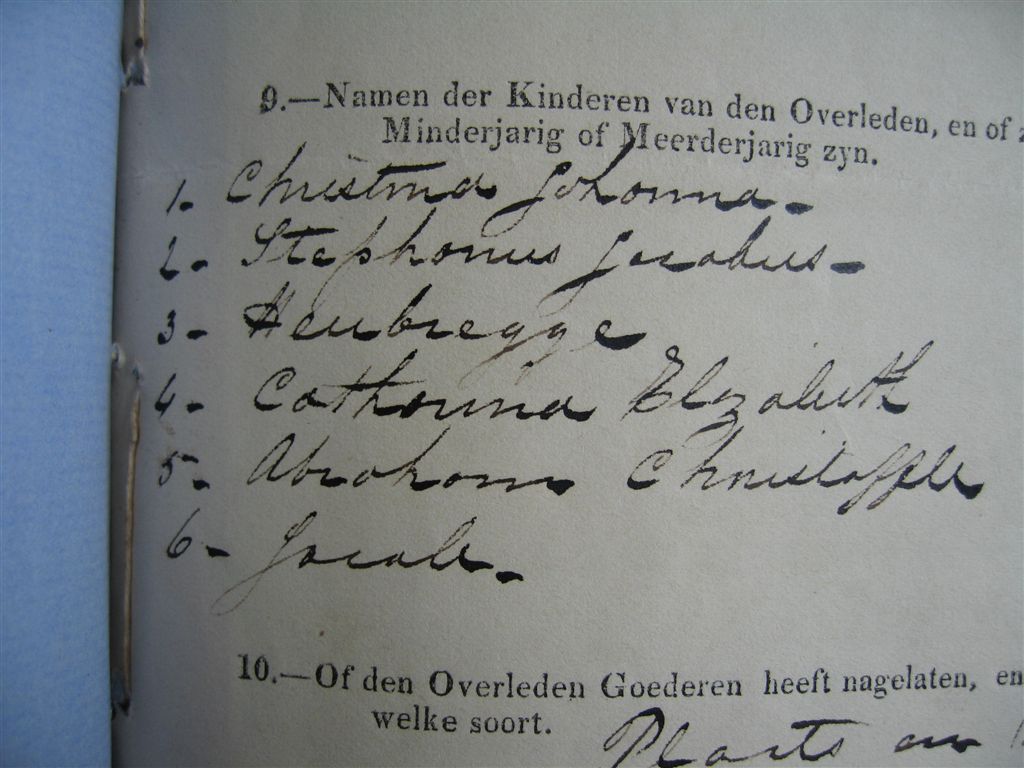 9.—Namen der Kinderen van den Overleden, en of
Minderjarig of Meerderjarig zyn.
1. Christina Johanna -
2 - Stephanus Jacobus -
3 - Heubregge
4 - Catharina Elizabeth
5 - Abraham Christoffel
6 - Jacob -
10.—Of den Overleden Goederen heeft nagelaten, en
welke soort.
Plaats